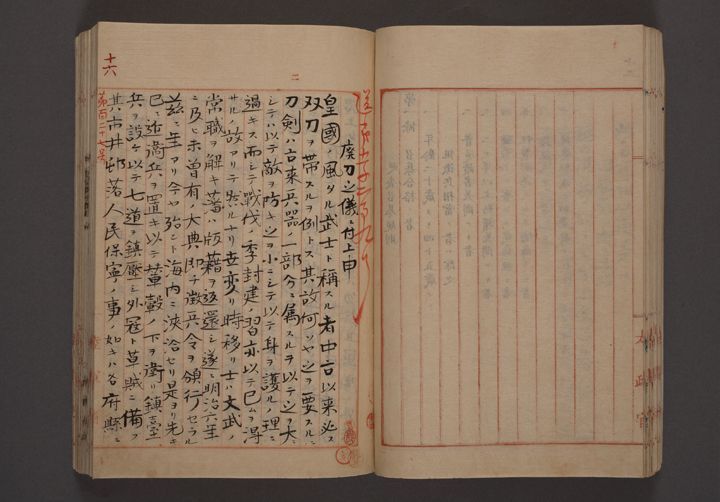 廃刀之儀ニ付上申
皇國ノ風タル武士ト稱スル者中古以来必ス
双刀ヲ帯スルヲ例トス其故何ソヤ之ヲ要スルニ
刀剣ハ古来兵器ノ一部分ニ属スルヲ以テ之ヲ大ニ
シテハ以テ敵ヲ防キ之ヲ小ニシテハ以テ身ヲ護ルノ理ニ
過キス而シテ戦伐ノ季封建ノ習亦以テ已ムヲ得
サル故アリテ然ルナリ世変リ時移リ士ハ文武ノ
常職ヲ解キ藩ハ版籍ヲ返還シ遂ニ明治六年
ニ及ヒ未曽有ノ大典即チ徴兵令ヲ領行セラル
茲ニ年アリ今ヤ殆ント海内ニ浹洽セリ是ヨリ先キ
已ニ近衛兵ヲ置キ以テ輦轂ノ下ヲ衛リ鎮臺
兵ヲ設ケ以テ七道ヲ鎮壓シ外冦ト草賊ニ備フ
其市井邨落人民保寧ノ事ノ如キハ各府縣ニ
十六
第百二十七号
二
太政官